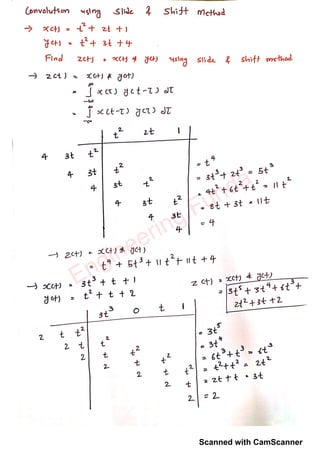 Convolution using slide & shift method
→ x(t) = t² + 2t + 1
y(t) = t² + 3t + 4
Find z(t) = x(t) * y(t) using slide & shift method
→ z(t) = x(t) * y(t)
= ∫ x(τ) y(t-τ) dτ
= ∫ x(t-τ) y(τ) dτ
t² 2t 1
4 3t t² = t⁴
4 3t t² = 3t³ + 2t³ = 5t³
4 3t t² = 4t² + 6t² + t² = 11t²
4 3t t² = 8t + 3t = 11t
4 3t = 4
4
→ z(t) = x(t) * y(t)
= t⁴ + 5t³ + 11t² + 11t + 4
→ x(t) = 3t³ + t + 1
y(t) = t² + t + 2
z(t) = x(t) * y(t)
= 3t⁵ + 3t⁴ + 6t³ +
2t² + 3t + 2
3t³ 0 t 1
2 t t² = 3t⁵
2 t t² = 3t⁴
2 t t² = 6t³ + t³ = 6t³
2 t t² = t² + t² = 2t²
2 t t² = 2t + t = 3t
2 t = 2
2
Engineering Funda
Scanned with CamScanner